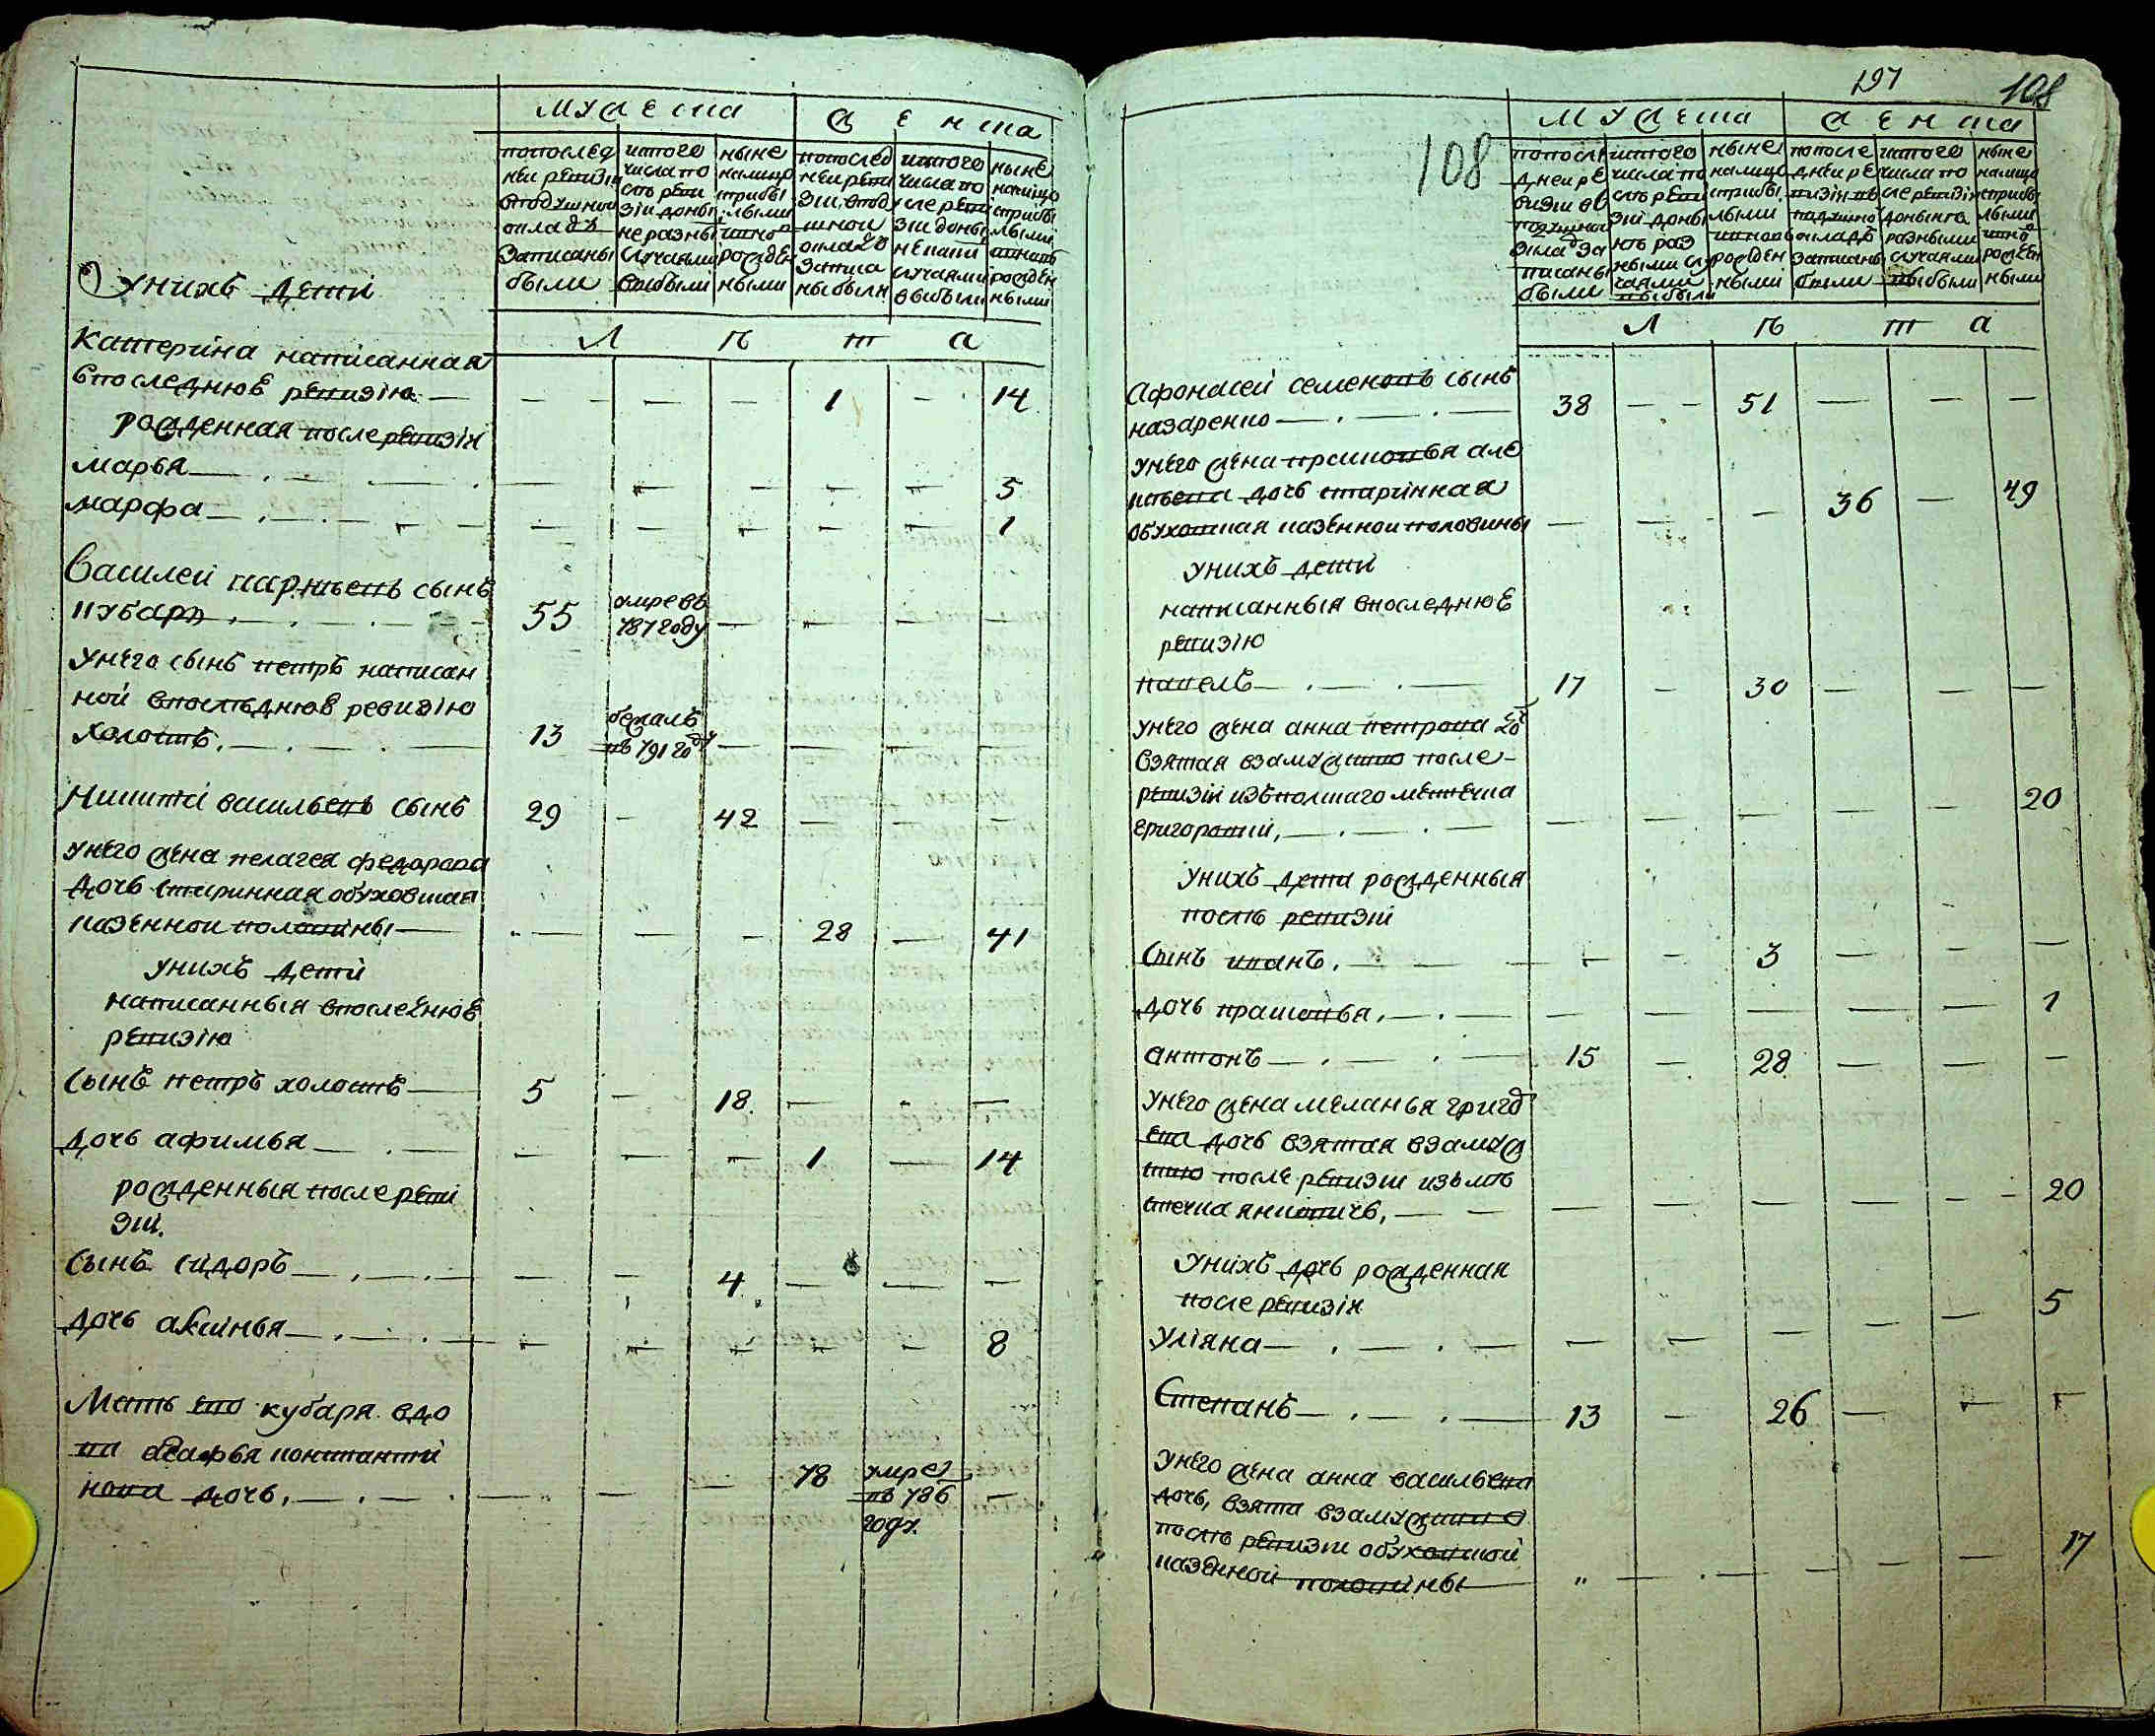 мужеска
женска
по послед
ней ревизiи
в подушной
окладъ
записаны
были
ис того
числа по
слъ реви
зiи доны
не разны
случаями
выбыли
ныне
налицо
с прибы
лыми
и вновь
рожден
ными
по послед
ней реви
зiи в поду
шной
окладъ
записа
ны были
ис того
числа по
сле реви
зiи доны
не разны
случаями
выбыли
ныне
налицо
с прибы
лыми
и вновь
рожден
ными
Л ѣ т а
у нихъ дети
катерина написанная
в последнюѣ ревизiю — 1 — 14
рожденная после ревизiи
марья — 5
марфа — 1
василей карнѣевъ сынъ
кубаръ 55 умре въ
787 году
у него сынъ петръ написан
ной в послѣднюѣ ревизiю
холостъ 13 бежалъ
въ 791 году
Никита васильевъ сынъ 29 — 42
у него жена пелагея федорова
дочь старинная обуховская
казенной половины — 28 — 41
у нихъ дети
написанныя в последнюѣ
ревизiю
сынъ петръ холостъ — 5 — 18
дочь афимья — 1 — 14
рожденныя после реви
зiи.
сынъ сидоръ — 4
дочь аксинья — 8
Мать ево кубаря вдо
ва агафья константи
нова дочь, — 78 умре
въ 786
году
197 108
108
мужеска
женска
по после
дней ре
визiи въ
подушной
окладъ за
писаны
были
ис того
числа по
слъ реви
зiи доны
нѣ раз
ными слу
чаями
выбыли
ныне
налицо
с прибы
лыми
и вновь
рожден
ными
по после
дней ре
визiи въ
подушной
окладъ
записаны
были
ис того
числа по
сле ревизiи
доныне
разными
случаями
выбыли
ныне
налицо
с прибы
лыми
и вновь
рожден
ными
Л ѣ т а
Афонасей семеновъ сынъ
назаренко — 38 — — 51 — — —
у него жена прасковья але
ксѣева дочь старинная
обуховская казенной половины — 36 — 49
у нихъ дети
написанныя в последнюѣ
ревизiю
павелъ — 17 — 30 — — —
у него жена анна петрова дочь
взятая в замужство после
ревизiи изъ полскаго местечка
григоровки, — 20
у нихъ дети рожденныя
послѣ ревизiи
сынъ иванъ. — 3 — — —
дочь прасковья, — 1
антонъ — 15 — 28 — — —
у него жена меланья григор
ева дочь взятая в замуж
ство после ревизiи изъ мѣ
стечка яновичъ, — 20
у нихъ дочь рожденная
после ревизiи
улiяна — 5
Степанъ — 13 — 26 —
у него жена анна васильева
дочь, взята в замужство
послѣ ревизiи обуховской
казенной половины — 17